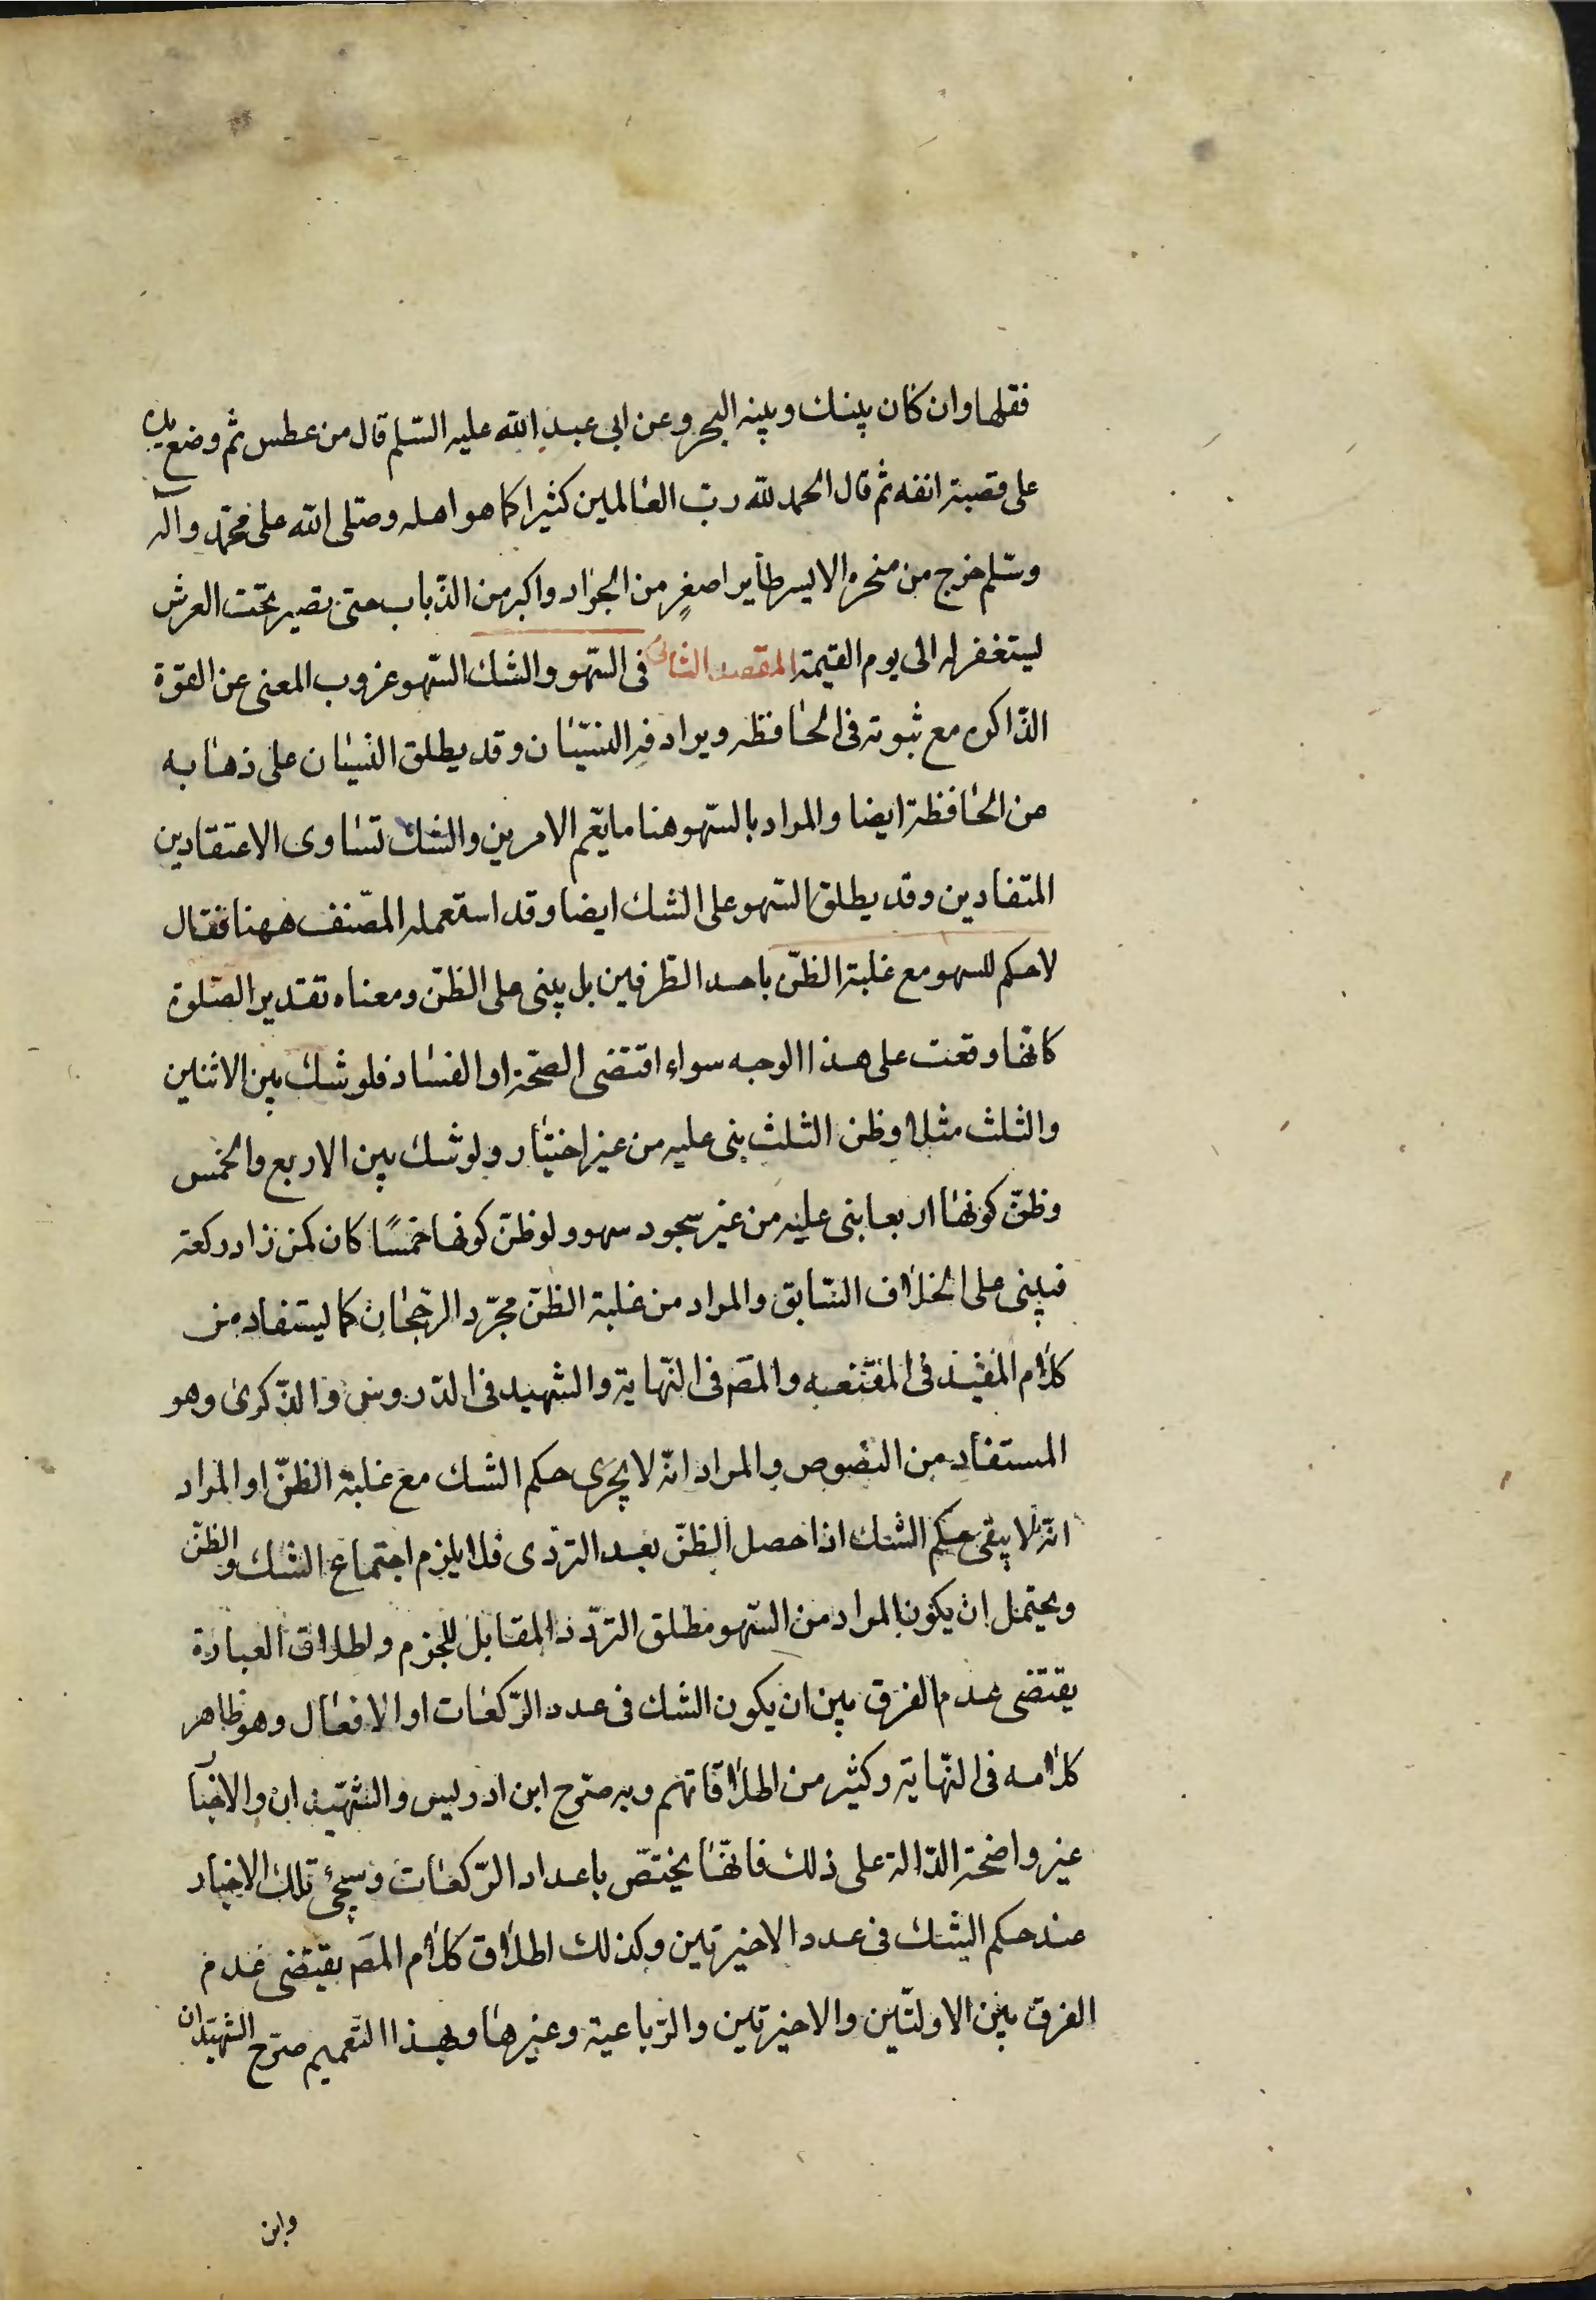 فقلها وان كان بينك وبينه البحر وعن ابى عبد الله عليه السّلم قال من عطس ثم وضع يده
على قصبة انفه ثم قال الحمد لله ربّ العالمين كثيرا كما هو اهله وصلّى الله على محمّد وآله
وسّلم خرج من منخره الايسر طأير اصغر من الجراد واكبر من الذّباب حتى يصير تحت العرش
ليستغفر له الى يوم القيمة المقصد الثانى فى السّهو والشك السّهو عزوب المعنى عن القوّة
الذّاكره مع ثبوته فى الحافظه ويرادفه النسيّان وقد يطلق النسيان على ذهابه
عن الحافظة ايضا والمراد بالسّهو هنا ما يعّم الامرين والشك تساوى الاعتقادين
المتضادين وقد يطلق السّهو على الشك ايضا وقد استعمله المصّنف ههنا فقال
لا حكم للسهو مع غلبة الظنّ باحد الطرفين بل يبنى على الظنّ ومعناه تقدير الصّلوة
كانها وقعت على هذا الوجه سواء اقتضى الصّحة او الفساد فلو شك بين الاثنين
والثلث مثلا وظن الثلث بنى عليه من غير احتياط ولو شك بين الاربع والخمس
وظنّ كونها اربعا بنى عليه من غير سجود سهو ولو ظنّ كونها خمسًا كان كمن زاد ركعة
فيبنى على الخلاف السّابق والمراد من غلبة الظنّ مجرّد الرّجحان كما يستفاد من
كلام المفيد فى المقنعه والمصَ فى النّهاية والشهيد فى الدّروس والذّكرى وهو
المستفاد من النصوص والمراد انّه لا يجرى حكم الشك مع غلبة الظنّ او المراد
انّه لا يبقى حكم الشك اذا حصل الظنّ بعد التردّى فلا يلزم اجتماع الشك والظنّ
ويحتمل ان يكون المراد من السّهو مطلق التردّد المقابل للجزم واطلاق العبارة
يقتضى عدم الفرق بين ان يكون الشك فى عدد الرّكعات او الافعال وهو ظاهر
كلامه فى النّهاية وكثير من اطلاقاتهم وبه صرّح ابن ادريس والشهيدان والاخبا
غير واضحة الدّالة على ذلك فانّها يختصّ باعداد الرّكعات وسيجئ تلك الاخبار
عند حكم الشك فى عدد الاخيرتين وكذلك اطلاق كلام المصَ يقتضى عدم
الفرق بين الاولتين والاخيرتين والرّباعية وغيرها وبهذا التّعميم صرّح الشهيدان
وابن